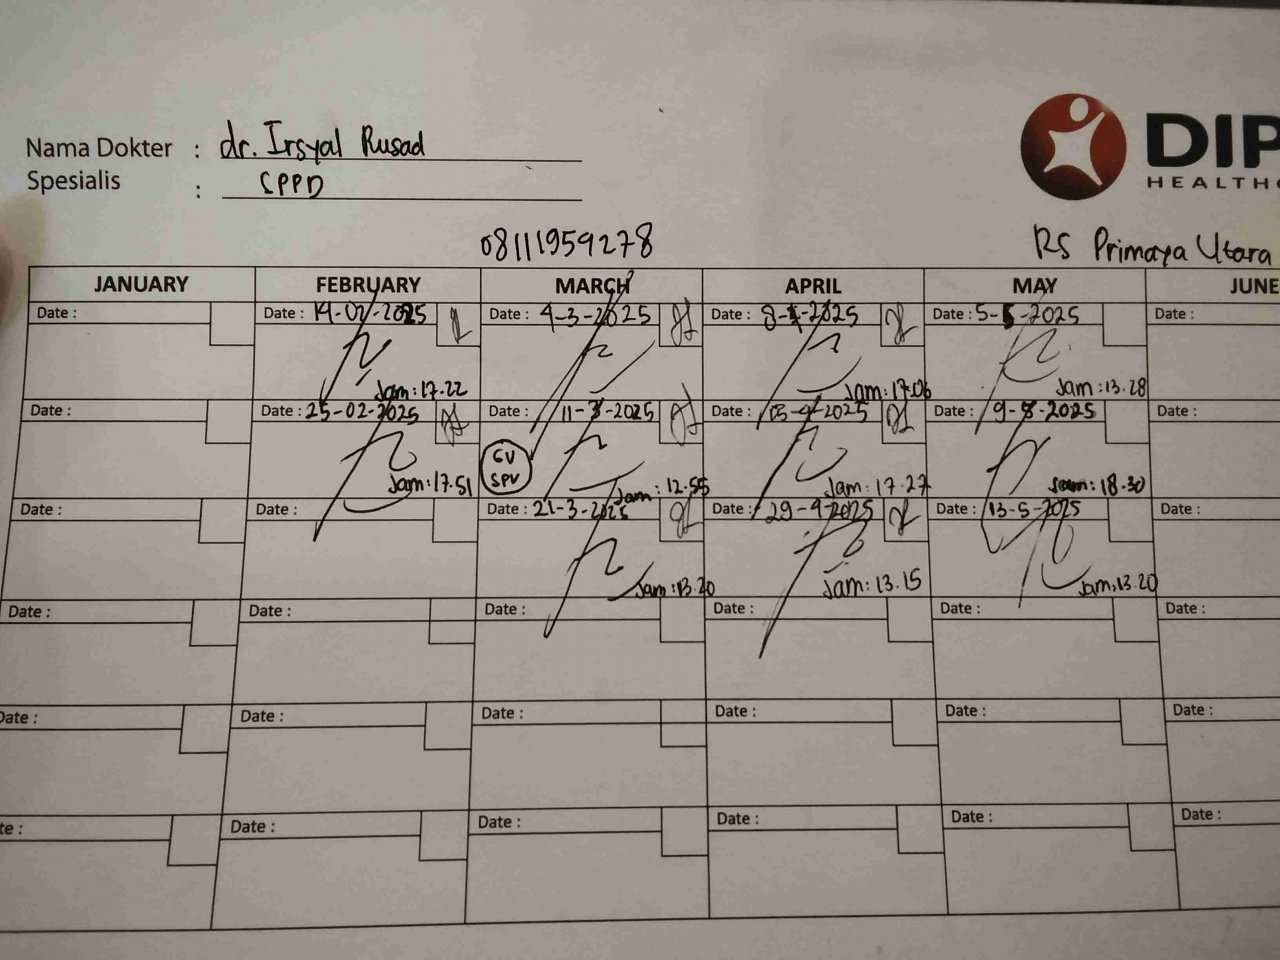 Nama Dokter : dr. Irsyal Rusad
Spesialis : SPPD
DIP
HEALTHC
08111959278
RS Primaya Utara
JANUARY FEBRUARY MARCH APRIL MAY JUNE
Date : Date : 14-02-2025 Date : 4-3-2025 Date : 8-4-2025 Date : 5-5-2025 Date :
Jam: 17.22 Jam: 17.06 Jam: 13.28
Date : Date : 25-02-2025 Date : 11-3-2025 Date : 15-4-2025 Date : 9-5-2025 Date :
GV
SPV
Jam: 17.51 Jam: 12.55 Jam: 17.27 Jam: 18.30
Date : Date : Date : 21-3-2025 Date : 29-4-2025 Date : 13-5-2025 Date :
Jam: 13.20 Jam: 13.15 Jam: 13.20
Date : Date : Date : Date : Date : Date :
Date : Date : Date : Date : Date : Date :
te : Date : Date : Date : Date : Date :